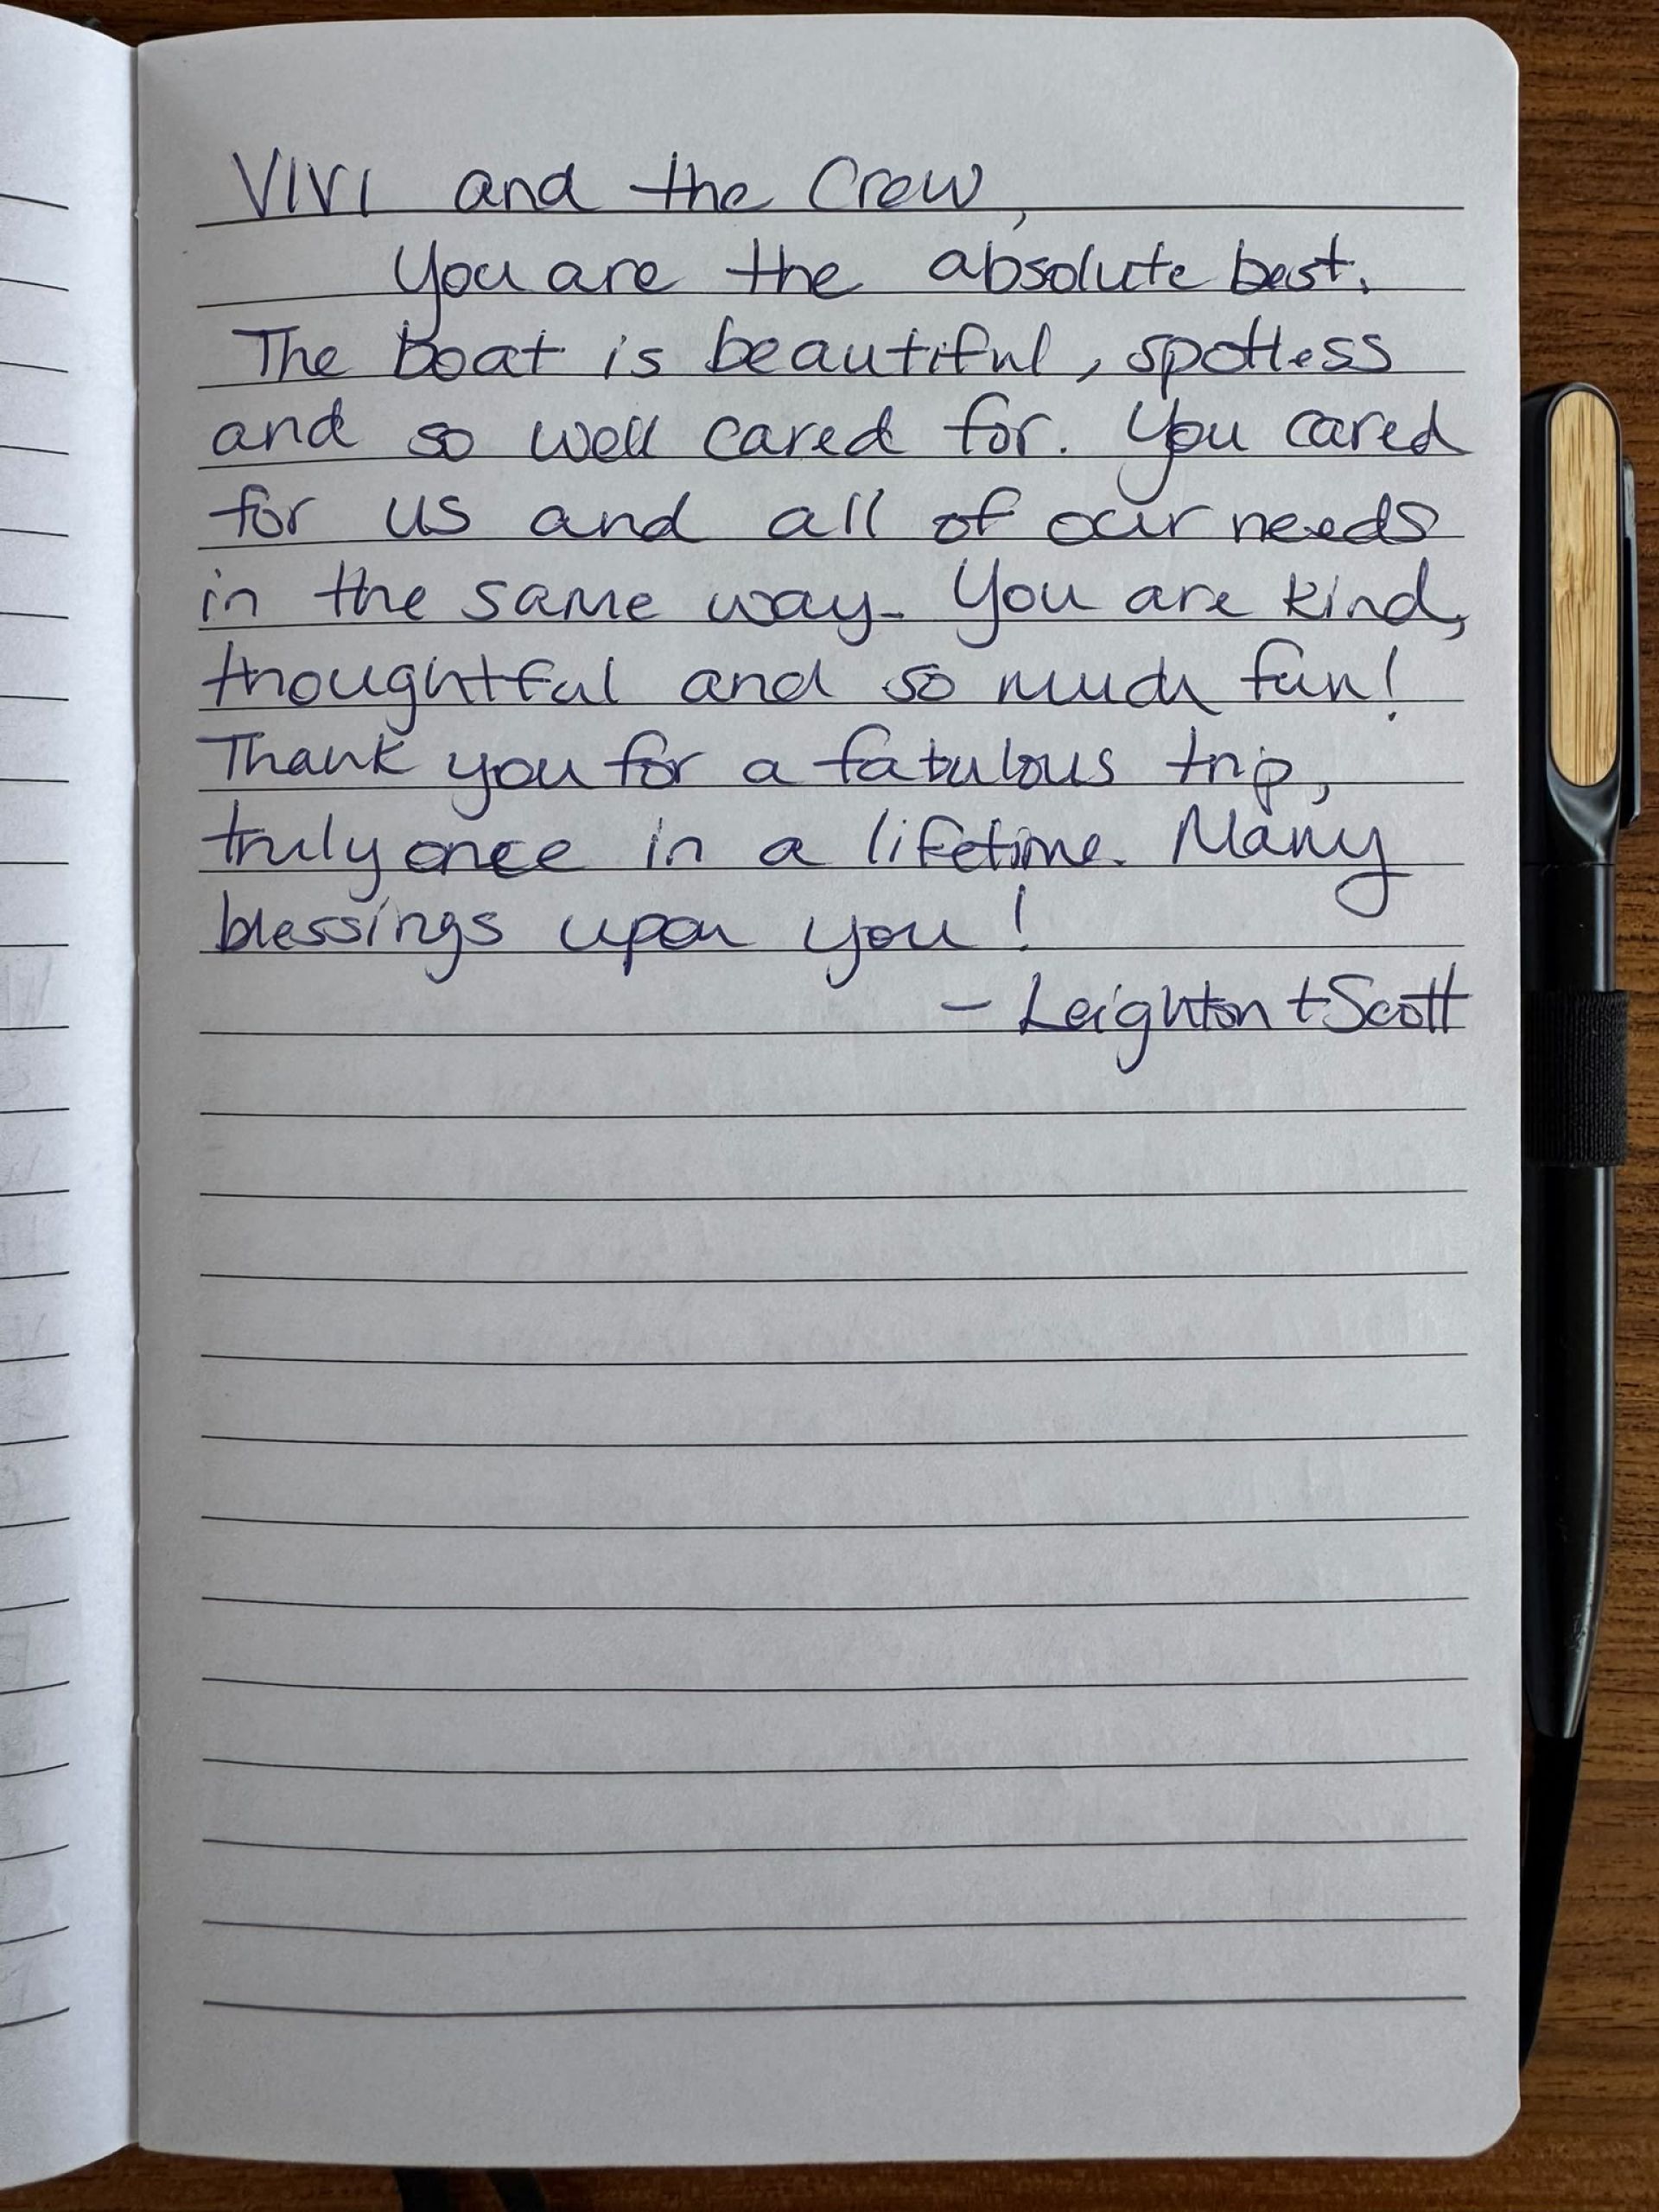 VIVI and the Crew,
You are the absolute best.
The boat is beautiful, spotless
and so well cared for. You cared
for us and all of our needs
in the same way. You are kind,
thoughtful and so much fun!
Thank you for a fabulous trip,
truly once in a lifetime. Many
blessings upon you!
- Leighton + Scott